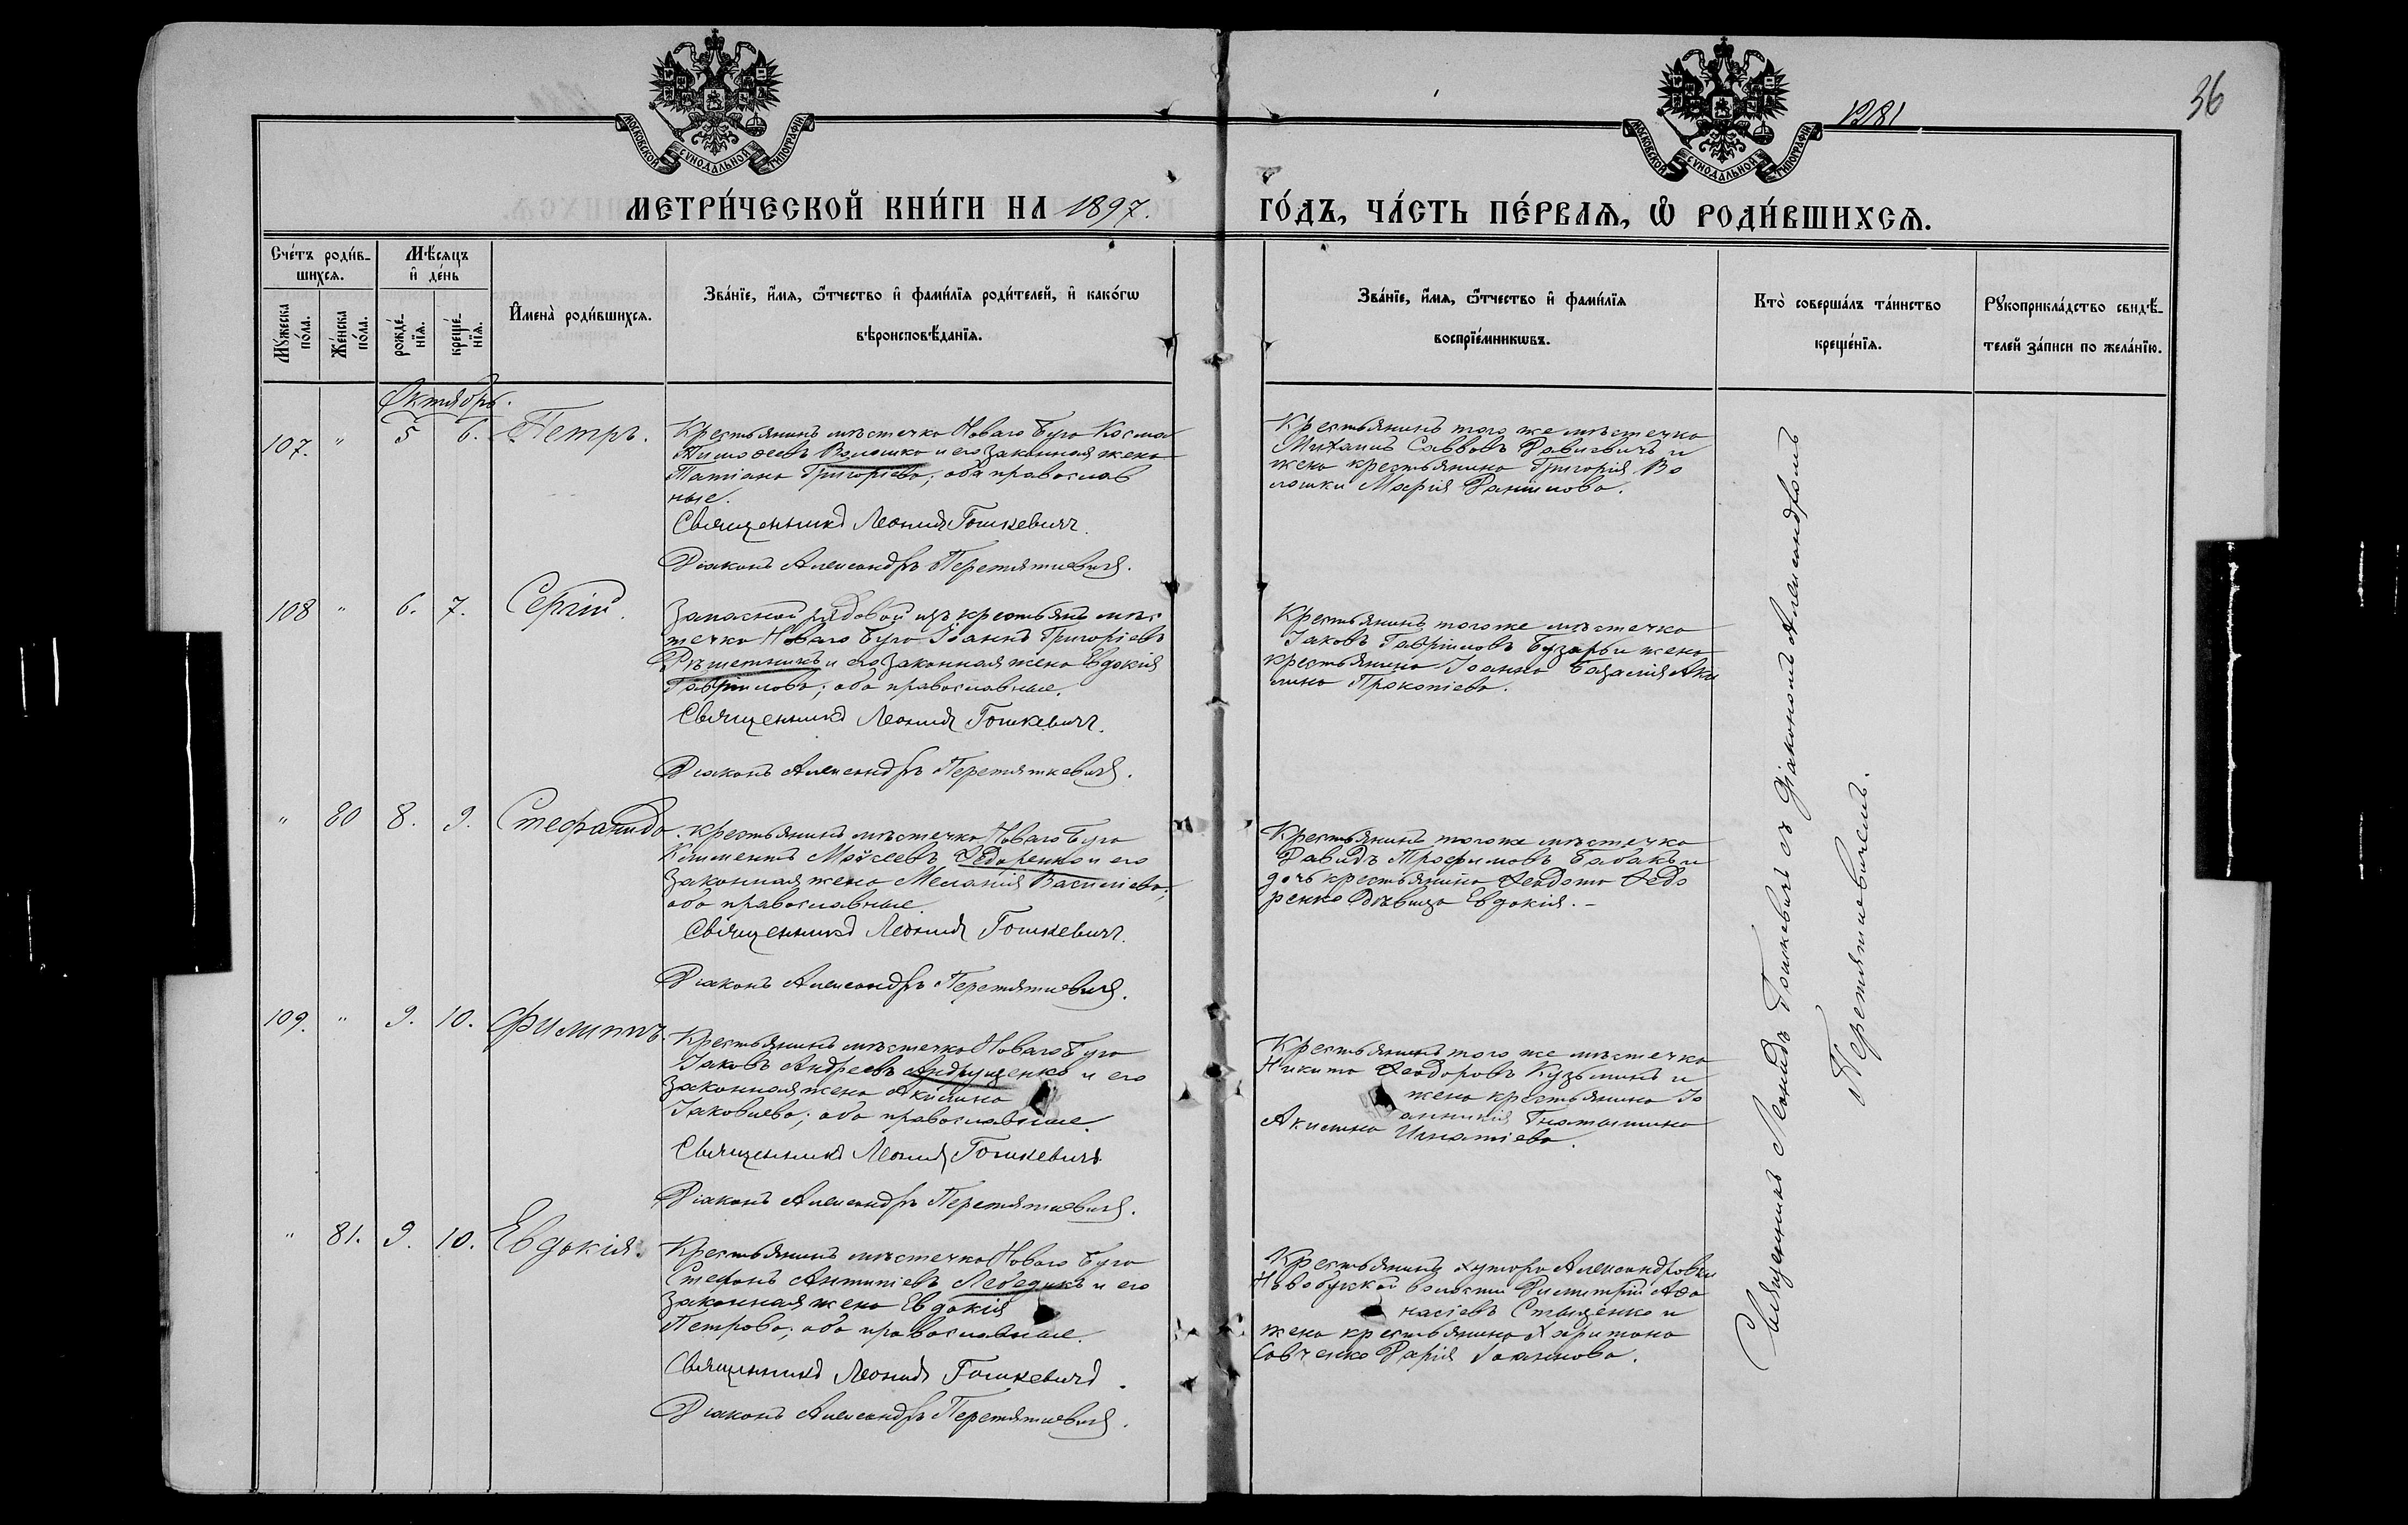 36
1281
МОСКОВСКОЙ СѴНОДАЛЬНОЙ ТИПОГРАФІИ
МОСКОВСКОЙ СѴНОДАЛЬНОЙ ТИПОГРАФІИ
МЕТРИ́ЧЕСКОЙ КНИ́ГИ НА 1897.
ГО́ДЪ, ЧА́СТЬ ПЕ́РВАѦ, Ѡ҆ РОДИ́ВШИХСѦ.
Сче́тъ роди́в-
шихсѧ.
Мꙋ́жеска по́ла.
Же́нска по́ла.
Мѣ́сѧцъ
и҆ де́нь
рожде́-
нїѧ.
креще́-
нїѧ.
И҆мена̀ роди́вшихсѧ.
Зва́нїе, и҆́мѧ, ѻ҆́тчество и҆ фами́лїѧ роди́телей, и҆ како́гѡ
вѣроисповѣ́данїѧ.
Зва́нїе, и҆́мѧ, ѻ҆́тчество и҆ фами́лїѧ
воспрїе́мникѡвъ.
Кто̀ соверша́лъ та́инство
креще́нїѧ.
Рꙋкоприкла́дство свидѣ́-
телей за́писи по жела́нїю.
Октябрь.
107. " 5 6. Петръ.
Крестьянинъ мѣстечка Новаго Буга Косма
Тимоѳеевъ Волошко и его законная жена
Татіана Григоріева; оба православ
ные.
Священникъ Леонидъ Гошкевичъ.
Діаконъ Александръ Перетяткевичъ.
Крестьянинъ того же мѣстечка
Михаилъ Саввовъ и
жена крестьянина Григорія Во
лошки Марія Даніилова.
108 " 6. 7. Сергій.
Запасной рядовой изъ крестьянъ мѣс
течка Новаго Буга Іоаннъ Григоріевъ
Рѣшетникъ и его законная жена Евдокія
Гавріилова; оба православные.
Священникъ Леонидъ Гошкевичъ.
Діаконъ Александръ Перетяткевичъ.
Крестьянинъ того же мѣстечка
Іаковъ Гавріиловъ Бузарь и жена
крестьянина Іоанна Аки
лина Прокопіева.
" 80 8. 9. Стефанида.
Крестьянинъ мѣстечка Новаго Буга
Климентъ Моѵсеевъ Ѳедоренко и его
законная жена Меланія Василіева;
оба православные.
Священникъ Леонидъ Гошкевичъ.
Діаконъ Александръ Перетяткевичъ.
Крестьянинъ того же мѣстечка
Давидъ Трофимовъ Бабакъ и
дочь крестьянина Ѳеодота Ѳедо
ренко дѣвица Евдокія. –
109. " 9. 10. Филиппъ.
Крестьянинъ мѣстечка Новаго Буга
Іаковъ Андреевъ Андрущенко и его
законная жена Акилина
Іаковлева; оба православные.
Священникъ Леонидъ Гошкевичъ
Діаконъ Александръ Перетяткевичъ.
Крестьянинъ того же мѣстечка
Никита Ѳеодоровъ Кузьминъ и
жена крестьянина Іо
анникія Гнатышина
Акилина Игнатіева.
" 81. 9. 10. Евдокія.
Крестьянинъ мѣстечка Новаго Буга
Стефанъ Антипіевъ Лебедикъ и его
законная жена Евдокія
Петрова; оба православные.
Священникъ Леонидъ Гошкевичъ.
Діаконъ Александръ Перетяткевичъ.
Крестьянинъ хутора Александровки
Новобугской волости Димитрій Аѳа
насіевъ Стыценко и
жена крестьянина Харитона
Савченко Дарія Іоаннова.
Священникъ Леонидъ Гошкевичъ съ Діакономъ Александромъ
Перетяткевичемъ.